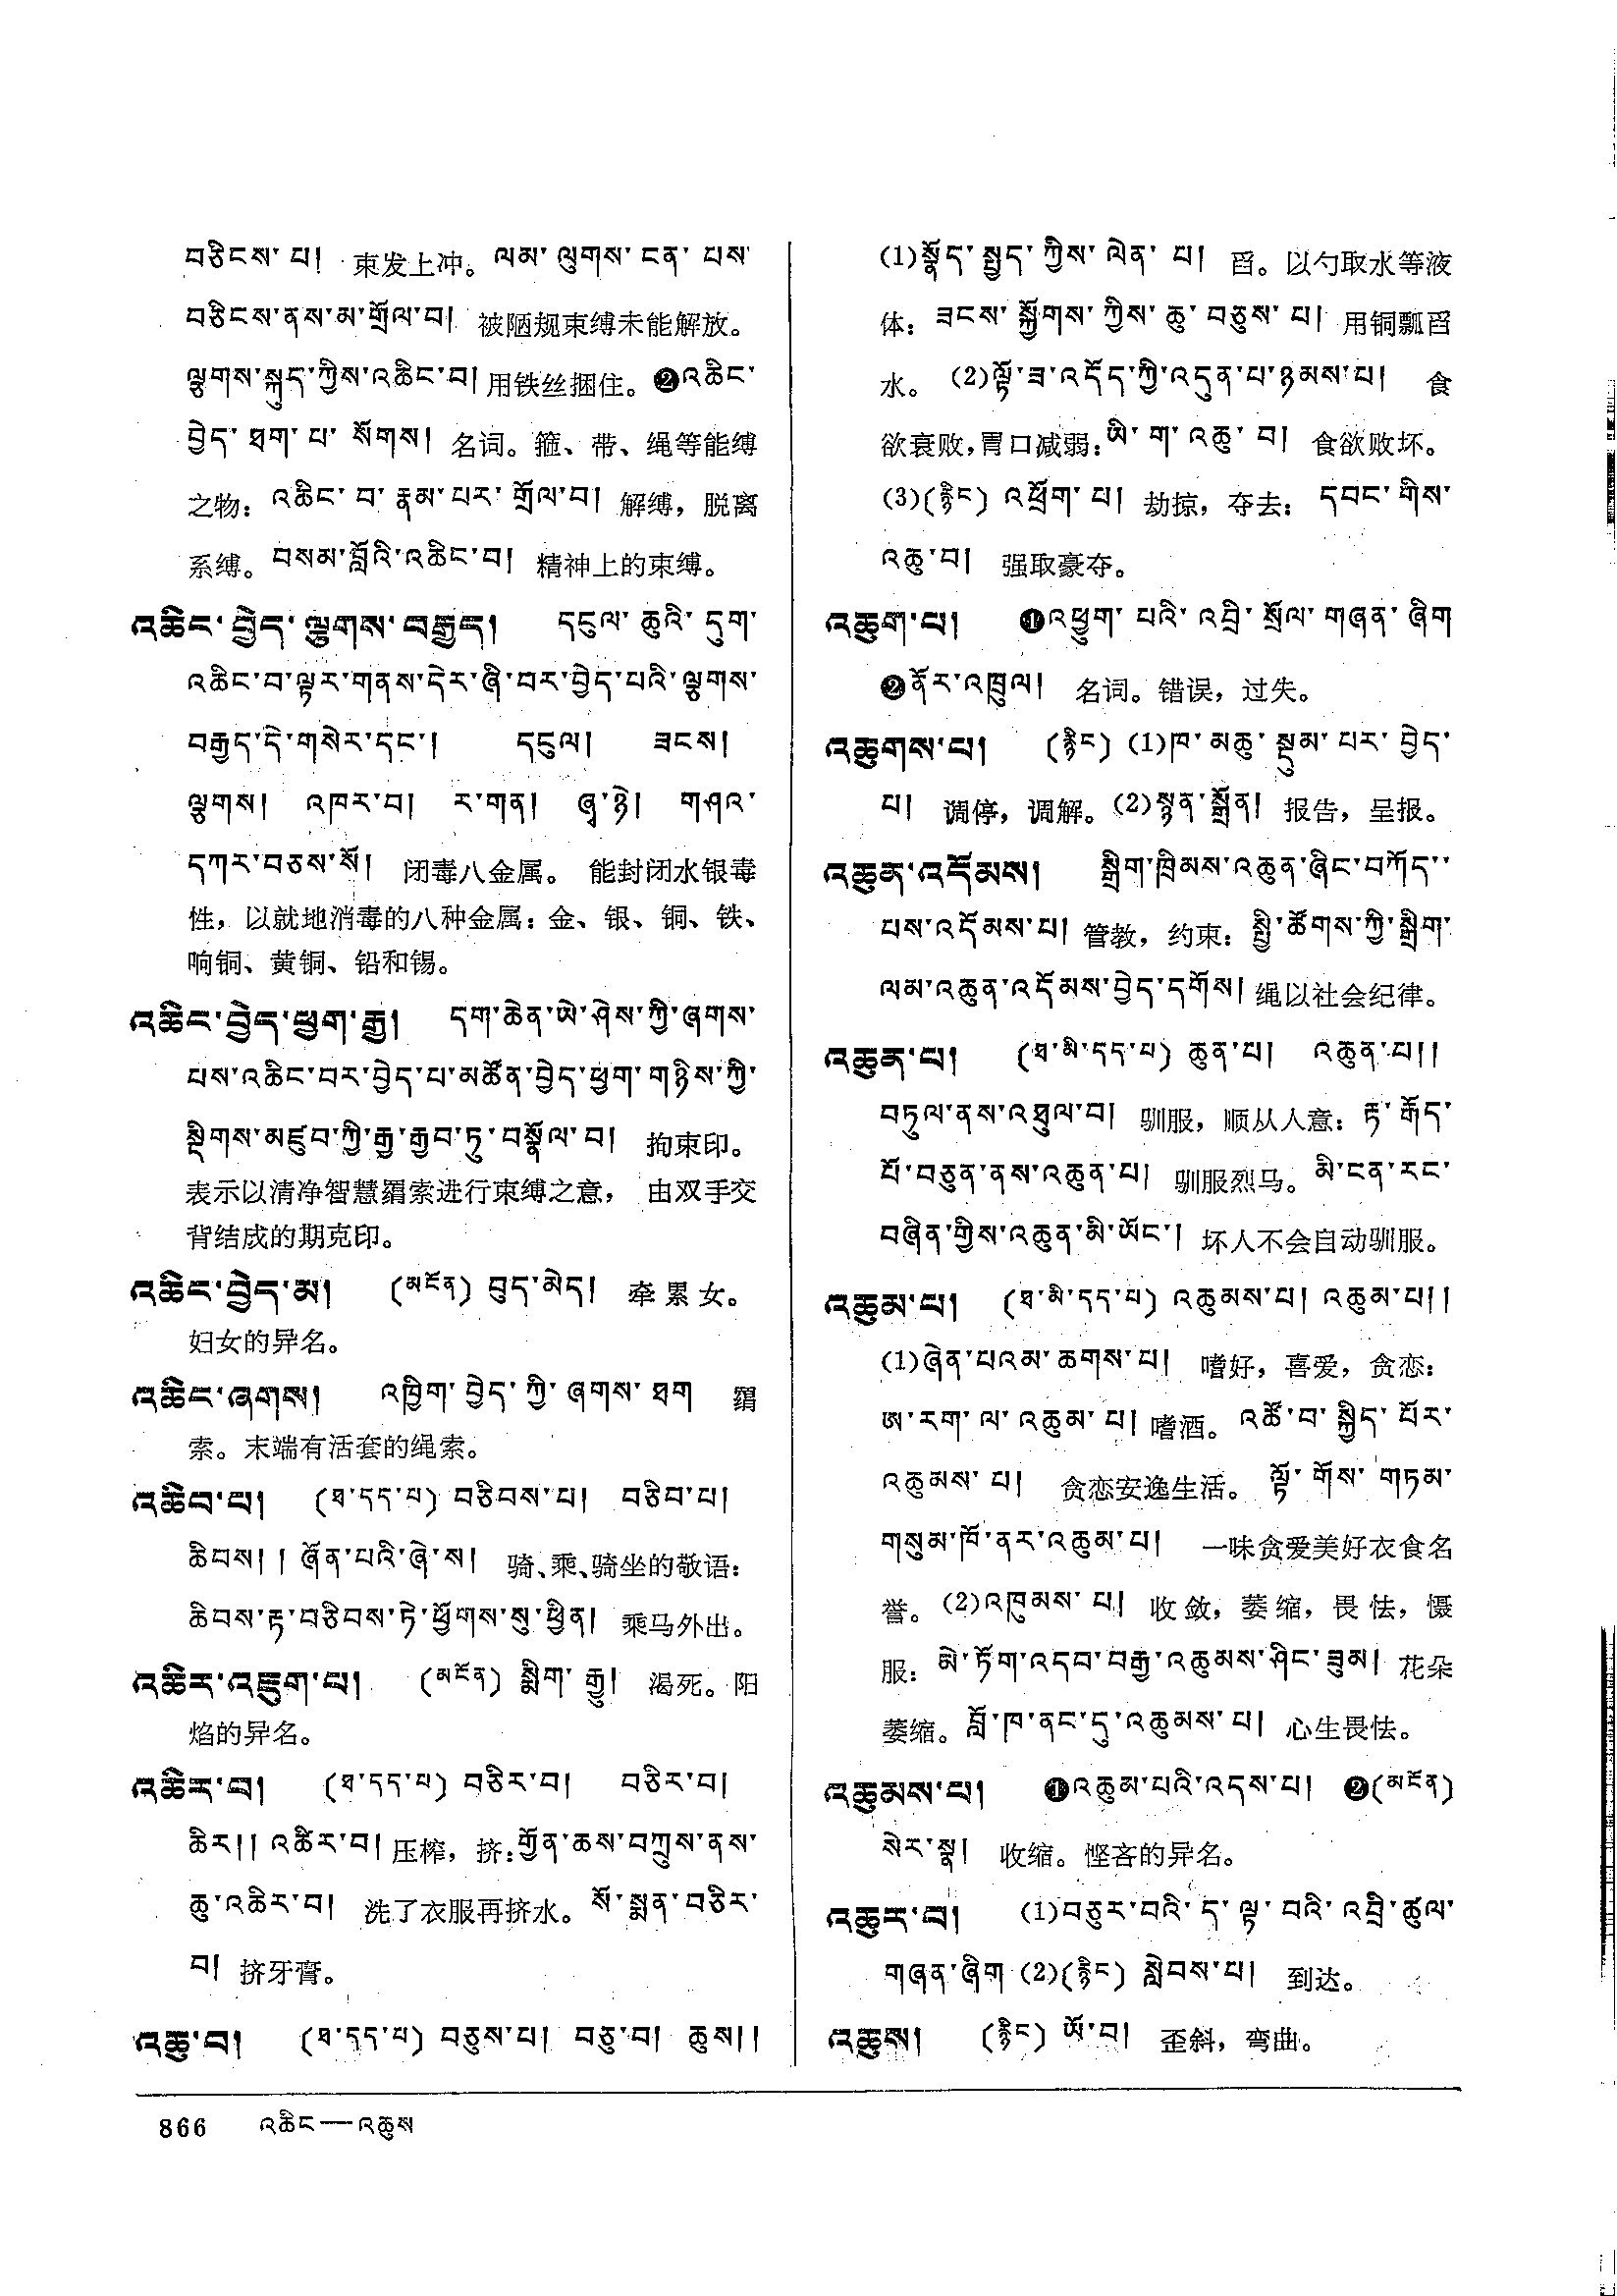 བཅིངས་པ། 束发上冲。ལམ་ལུགས་ངན་པས་
བཅིངས་ནས་མ་གྲོལ་བ། 被陋规束缚未能解放。
ལྕགས་སྐུད་ཀྱིས་འཆིང་བ། 用铁丝捆住。❷འཆིང་
བྱེད་ཐག་པ་སོགས། 名词。箍、带、绳等能缚
之物：འཆིང་བ་རྣམ་པར་གྲོལ་བ། 解缚，脱离
系缚。བསམ་བློའི་འཆིང་བ། 精神上的束缚。
འཆིང་བྱེད་ལྕགས་བརྒྱད། དངུལ་ཆུའི་དུག་
འཆིང་བ་ལྟར་གནས་དེར་ཞི་བར་བྱེད་པའི་ལྕགས་
བརྒྱད་དེ་གསེར་དང་། དངུལ། ཟངས།
ལྕགས། འཁར་བ། ར་གན། ཞྭ་ཉེ། གཤའ་
དཀར་བཅས་སོ། 闭毒八金属。 能封闭水银毒
性，以就地消毒的八种金属：金、银、铜、铁、
响铜、黄铜、铅和锡。
འཆིང་བྱེད་ཕྱག་རྒྱ། དག་ཆེན་ཡེ་ཤེས་ཀྱི་ཞགས་
པས་འཆིང་བར་བྱེད་པ་མཚོན་བྱེད་ཕྱག་གཉིས་ཀྱི་
སྡིགས་མཛུབ་ཀྱི་རྒྱ་རྒྱབ་ཏུ་བསྣོལ་བ། 拘束印。
表示以清净智慧羂索进行束缚之意， 由双手交
背结成的期克印。
འཆིང་བྱེད་མ། (མངོན) བུད་མེད། 牵累女。
妇女的异名。
འཆིང་ཞགས། འཁྱིག་བྱེད་ཀྱི་ཞགས་ཐག 羂
索。末端有活套的绳索。
འཆིབ་པ། (ཐ་དད་པ) བཅིབས་པ། བཅིབ་པ།
ཆིབས།། ཞོན་པའི་ཞེ་ས། 骑、乘、骑坐的敬语：
ཆིབས་རྟ་བཅིབས་ཏེ་ཕྱོགས་སུ་ཕྱིན། 乘马外出。
འཆིར་འཇུག་པ། (མངོན) སྨིག་རྒྱུ། 渴死。阳
焰的异名。
འཆིར་བ། (ཐ་དད་པ) བཅིར་བ། བཅིར་བ།
ཆིར།། འཚིར་བ། 压榨，挤：གྱོན་ཆས་བཀྲུས་ནས་
ཆུ་འཆིར་བ། 洗了衣服再挤水。སོ་སྨན་བཅིར་
བ། 挤牙膏。
འཆུ་བ། (ཐ་དད་པ) བཅུས་པ། བཅུ་བ། ཆུས།།
(1)སྣོད་སྤྱད་ཀྱིས་ལེན་པ། 舀。以勺取水等液
体：ཟངས་སྐྱོགས་ཀྱིས་ཆུ་བཅུས་པ། 用铜瓢舀
水。(2)ལྟོ་ཟ་འདོད་ཀྱི་འདུན་པ་ཉམས་པ། 食
欲衰败，胃口减弱：ཡི་ག་འཆུ་བ། 食欲败坏。
(3)(རྙིང) འཕྲོག་པ། 劫掠，夺去：དབང་གིས་
འཆུ་བ། 强取豪夺。
འཆུག་པ། ❶འཕྱུག་པའི་འབྲི་སྲོལ་གཞན་ཞིག
❷ནོར་འཁྲུལ། 名词。错误，过失。
འཆུགས་པ། (རྙིང) (1)ཁ་མཆུ་སྡུམ་པར་བྱེད་
པ། 调停，调解。(2)སྙན་སྒྲོན། 报告，呈报。
འཆུན་འདོམས། སྒྲིག་ཁྲིམས་འཆུན་ཞིང་བཀོད་
པས་འདོམས་པ། 管教，约束：སྤྱི་ཚོགས་ཀྱི་སྒྲིག་
ལམ་འཆུན་འདོམས་བྱེད་དགོས། 绳以社会纪律。
འཆུན་པ། (ཐ་མི་དད་པ) ཆུན་པ། འཆུན་པ།།
བཏུལ་ནས་འཐུལ་བ། 驯服，顺从人意：རྟ་རྒོད་
པོ་བཅུན་ནས་འཆུན་པ། 驯服烈马。མི་ངན་རང་
བཞིན་གྱིས་འཆུན་མི་ཡོང་། 坏人不会自动驯服。
འཆུམ་པ། (ཐ་མི་དད་པ) འཆུམས་པ། འཆུམ་པ།།
(1)ཞེན་པའམ་ཆགས་པ། 嗜好，喜爱，贪恋：
ཨ་རག་ལ་འཆུམ་པ། 嗜酒。འཚོ་བ་སྐྱིད་པོར་
འཆུམས་པ། 贪恋安逸生活。ལྟོ་གོས་གཏམ་
གསུམ་ཁོ་ནར་འཆུམ་པ། 一味贪爱美好衣食名
誉。(2)འཁུམས་པ། 收敛，萎缩，畏怯，慑
服：མེ་ཏོག་འདབ་བརྒྱ་འཆུམས་ཤིང་ཟུམ། 花朵
萎缩。བློ་ཁ་ནང་དུ་འཆུམས་པ། 心生畏怯。
འཆུམས་པ། ❶འཆུམ་པའི་འདས་པ། ❷(མངོན)
སེར་སྣ། 收缩。悭吝的异名。
འཆུར་བ། (1)བཅུར་བའི་ད་ལྟ་བའི་འབྲི་ཚུལ་
གཞན་ཞིག (2)(རྙིང) སླེབས་པ། 到达。
འཆུས། (རྙིང) ཡོ་བ། 歪斜，弯曲。
866 འཆིང—འཆུས